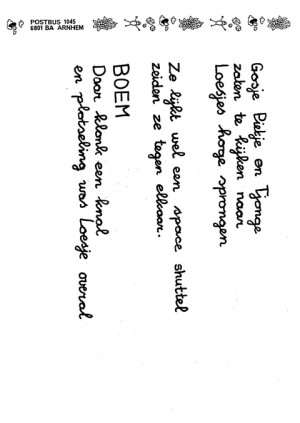 POSTBUS 1045
6801 BA ARNHEM
Gosje Pietje en Tjonge
zaten te kijken naar
Loesjes hoge sprongen
Ze lijkt wel een space shuttel
zeiden ze tegen elkaar.
BOEM
Daar klonk een knal
en plotseling was Loesje overal